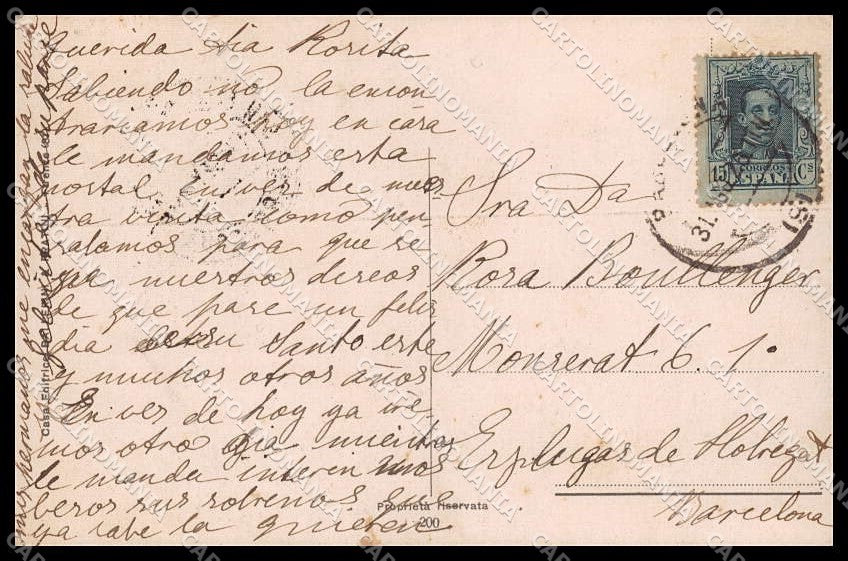 Querida tia Rosita
Sabiendo no la encon
trariamos hoy en casa
le mandamos esta
postal en vez de nues
tra visita como pen
salamos para que se
pa nuestros deseos
de que pase un feliz
dia su Santo este
y muchos otros años
En vez de hoy ya ire
mos otro dia mientras
le manda interin unos
besos sus sobrinos que
ya sabe la quieren
mis hermanos me encargan la salude
de su parte
Casa Editrice
Proprietà riservata
200
CORREOS
ESPAÑA
15 Cs
31
Sra Da
Rosa Boullenger
Monserat 6. 1º
Esplugas de Llobregat
Barcelona
CARTOLINOMANIA